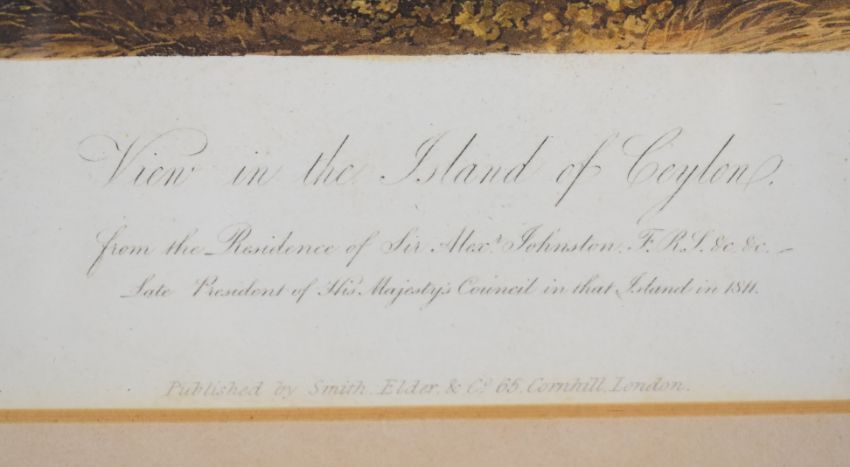 View in the Island of Ceylon.
from the Residence of Sir Alexr. Johnston, F.R.S. &c. &c. –
Late President of His Majesty's Council in that Island in 1811.
Published by Smith, Elder, & Co. 65, Cornhill, London.